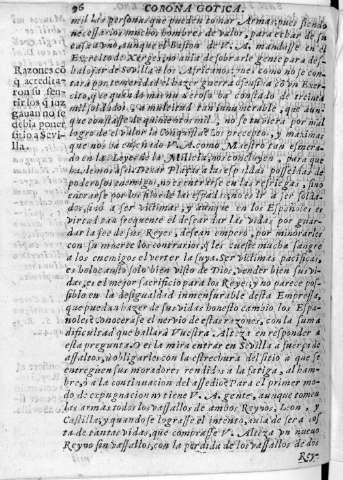 96 CORONA GOTICA.
mil las personas que pueden tomar Armas; pues siendo
necessarios muchos hombres de valor, para echar de su
casa a vno, aunque el Baston de V. A. mandasse en el
Exercito de Xerges, no auia de sobrarle gente para des-
alojar de Sevilla à los Africanos;
Razones cõ
q̃ acredita-
ron su sen-
tir los q̃ juz-
gauan no se
debia poner
sitio a Sevi-
lla.
mil soldados, a multitud tan innumerable, que aun-
que constasse de quinientos mil, no se tuviera por mal
logro el valor la Conquista: Los preceptos, y maximas
que nos ha enseñado V. A. como Maestro tan esmera-
do en las Leyes de la Milicia, nos concluyen, para que
hablemos assi. Dexar Plaças a las espaldas posseidas de
poderosos enemigos, no es entrarse en las refriegas, sino
entrarse por los filos de las espadas; no es ir à ser solda-
dos, sino à ser victimas; y aunque en los Españoles es
virtud tan frequente el desear dar las vidas por guar-
dar la fee de sus Reyes, desean empero, por minorarles
con su muerte los contrarios, q̃ les cueste mucha sangre
a los enemigos el verter la suya. Ser victimas pacificas,
es holocausto solo bien visto de Dios; vender bien sus vi-
das, es el mejor sacrificio para los Reyes; y no parece pos-
sible en la desigualdad inmensurable desta Empressa,
que puedan hazer de sus vidas honesto cambio los Espa-
ñoles. Conocerase el nervio de estas razones, con la suma
dificultad que hallarà Vuestra Alteza en responder à
esta pregunta. O es la mira entrar en Sevilla à fuerça de
assaltos, ù obligarles con la estrechura del sitio a que se
entreguen sus moradores rendidos à la fatiga, al ham-
bre, ò a la continuacion del assedio? Para el primer modo
de expugnacion no tiene V. A. gente, aunque tomen
las armas todos los vassallos de ambos Reynos, Leon, y
Castilla, y quando se lograsse el intento, auia de ser a cos-
ta de tantas vidas, que comprasse V. Alteza vn nuevo
Reyno sin vassallos, con la perdida de los vassallos de dos
Rey-